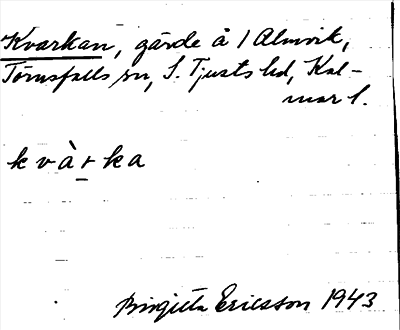 Kvarkan, gärde å 1 Almvik,
Törnsfalls sn, S. Tjusts hd, Kal-
mar l.
kvàrka
Birgitta Ericsson 1943